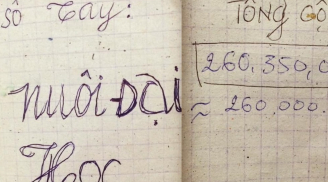 Sổ Tay:
nuôi Đại
Học
TỔNG CỘ
260.350,0
≈ 260.000.